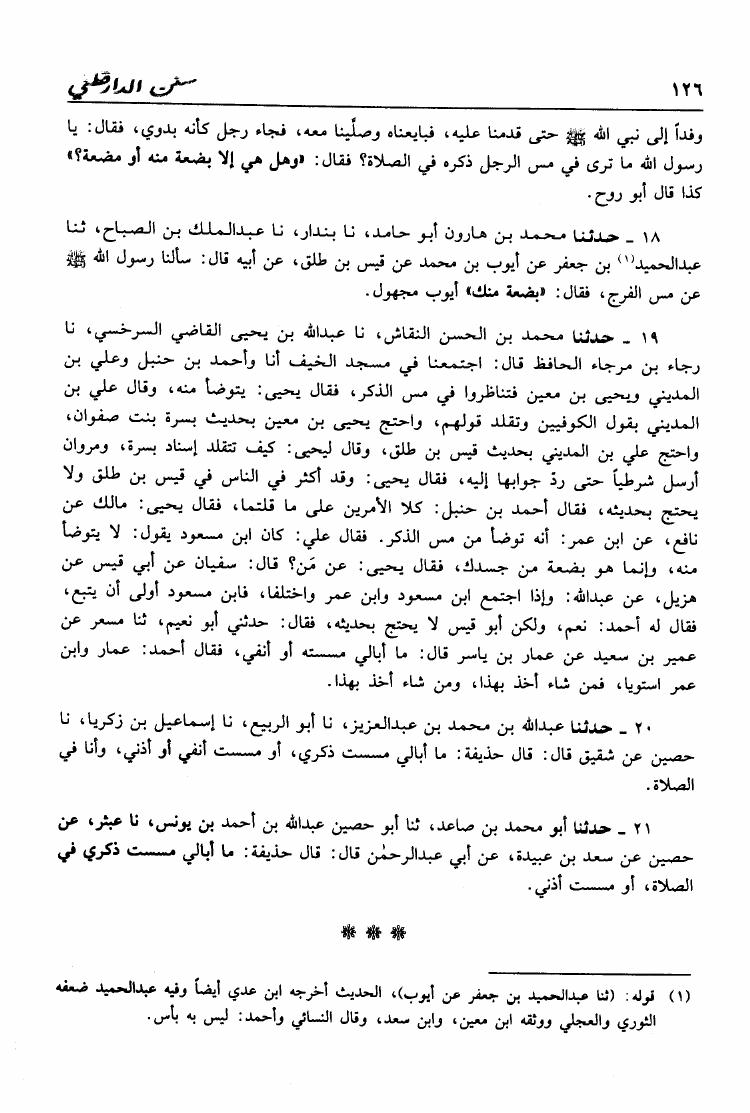 ١٢٦
سنن الدارقطني
وفداً إلى نبي الله ﷺ حتى قدمنا عليه، فبايعناه وصلّينا معه، فجاء رجل كأنه بدوي، فقال: يا
رسول الله ما ترى في مس الرجل ذكره في الصلاة؟ فقال: «وهل هي إلا بضعة منه أو مضعة؟»
كذا قال أبو روح.
١٨ ـ حدثنا محمد بن هارون أبو حامد، نا بندار، نا عبدالملك بن الصباح، ثنا
عبدالحميد(١) بن جعفر عن أيوب بن محمد عن قيس بن طلق، عن أبيه قال: سألنا رسول الله ﷺ
عن مس الفرج، فقال: «بضعة منك» أيوب مجهول.
١٩ ـ حدثنا محمد بن الحسن النقاش، نا عبدالله بن يحيى القاضي السرخسي، نا
رجاء بن مرجاء الحافظ قال: اجتمعنا في مسجد الخيف أنا وأحمد بن حنبل وعلي بن
المديني ويحيى بن معين فتناظروا في مس الذكر، فقال يحيى: يتوضأ منه، وقال علي بن
المديني بقول الكوفيين وتقلد قولهم، واحتج يحيى بن معين بحديث بسرة بنت صفوان،
واحتج علي بن المديني بحديث قيس بن طلق، وقال ليحيى: كيف تتقلد إسناد بسرة، ومروان
أرسل شرطياً حتى ردّ جوابها إليه، فقال يحيى: وقد أكثر في الناس في قيس بن طلق ولا
يحتج بحديثه، فقال أحمد بن حنبل: كلا الأمرين على ما قلتما، فقال يحيى: مالك عن
نافع، عن ابن عمر: أنه توضأ من مس الذكر. فقال علي: كان ابن مسعود يقول: لا يتوضأ
منه، وإنما هو بضعة من جسدك، فقال يحيى: عن مَن؟ قال: سفيان عن أبي قيس عن
هزيل، عن عبدالله: وإذا اجتمع ابن مسعود وابن عمر واختلفا، فابن مسعود أولى أن يتبع،
فقال له أحمد: نعم، ولكن أبو قيس لا يحتج بحديثه، فقال: حدثني أبو نعيم، ثنا مسعر عن
عمير بن سعيد عن عمار بن ياسر قال: ما أبالي مسسته أو أنفي، فقال أحمد: عمار وابن
عمر استويا، فمن شاء أخذ بهذا، ومن شاء أخذ بهذا.
٢٠ ـ حدثنا عبدالله بن محمد بن عبدالعزيز، نا أبو الربيع، نا إسماعيل بن زكريا، نا
حصين عن شقيق قال: قال حذيفة: ما أبالي مسست ذكري، أو مسست أنفي أو أذني، وأنا في
الصلاة.
٢١ ـ حدثنا أبو محمد بن صاعد، ثنا أبو حصين عبدالله بن أحمد بن يونس، نا عبثر، عن
حصين عن سعد بن عبيدة، عن أبي عبدالرحمٰن قال: قال حذيفة: ما أبالي مسست ذكري في
الصلاة، أو مسست أذني.
(١) قوله: (ثنا عبدالحميد بن جعفر عن أيوب)، الحديث أخرجه ابن عدي أيضاً وفيه عبدالحميد ضعفه
الثوري والعجلي ووثقه ابن معين، وابن سعد، وقال النسائي وأحمد: ليس به بأس.